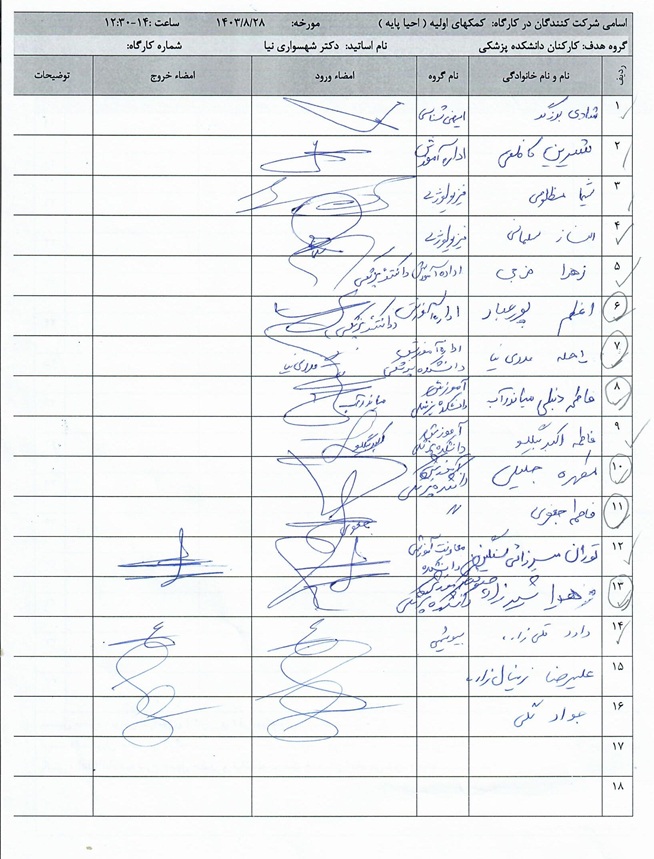 اسامی شرکت کنندگان در کارگاه: کمکهای اولیه ( احیا پایه ) مورخه: ۱۴۰۳/۸/۲۸ ساعت :۱۴-۱۲:۳۰
گروه هدف: کارکنان دانشکده پزشکی نام اساتید: دکتر شهسواری نیا شماره کارگاه:
ردیف نام و نام خانوادگی نام گروه امضاء ورود امضاء خروج توضیحات
۱ شادی ایمنی شناسی
۲ نسرین کاظمی اداره آموزش
۳ شیما مظلومی فیزیولوژی
۴ الناز سلمانی فیزیولوژی
۵ زهرا اداره آموزش دانشکده پزشکی
۶ اعظم پورعبار اداره آموزش دانشکده پزشکی
۷ راحله مددی نیا اداره آموزش دانشکده پزشکی مددی نیا
۸ فاطمه میاندرآب آموزش دانشکده پزشکی میاندرآب
۹ فاطمه آموزش دانشکده پزشکی
۱۰ مطهره جلیلی آموزش دانشکده پزشکی
۱۱ فاطمه یعقوبی " یعقوبی
۱۲ توران میرزائی معاونت آموزشی دانشکده
۱۳ زهرا دانشکده پزشکی
۱۴ داود تقی زاده بیوشیمی
۱۵ علیرضا
۱۶ جواد تقی
۱۷
۱۸